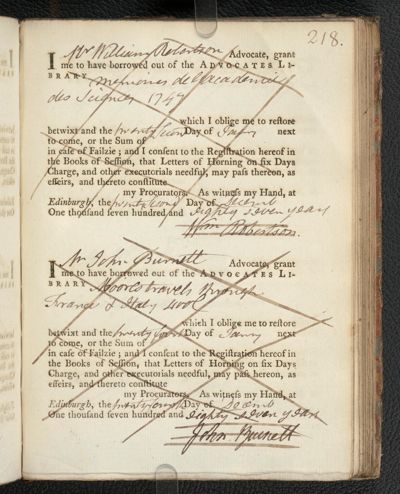 218.
I Mr William Robertson Advocate, grant
me to have borrowed out of the ADVOCATES LI-
BRARY memoires de l'academie
des Sciences 1747
which I oblige me to restore
betwixt and the twenty second Day of Jany next
to come, or the Sum of
in case of Failzie; and I consent to the Registration hereof in
the Books of Session, that Letters of Horning on six Days
Charge, and other executorials needful, may pass thereon, as
effeirs, and thereto constitute
my Procurators. As witness my Hand, at
Edinburgh, the twenty second Day of Decemb
One thousand seven hundred and eighty seven years
Wm Robertson.
I Mr John Burnett Advocate, grant
me to have borrowed out of the ADVOCATES LI-
BRARY Moores travels through
France & Italy
which I oblige me to restore
betwixt and the twenty Day of Jany next
to come, or the Sum of
in case of Failzie; and I consent to the Registration hereof in
the Books of Session, that Letters of Horning on six Days
Charge, and other executorials needful, may pass hereon, as
effeirs, and thereto constitute
my Procurators. As witness my Hand, at
Edinburgh, the Day of Decemb
One thousand seven hundred and eighty seven years
John Burnett